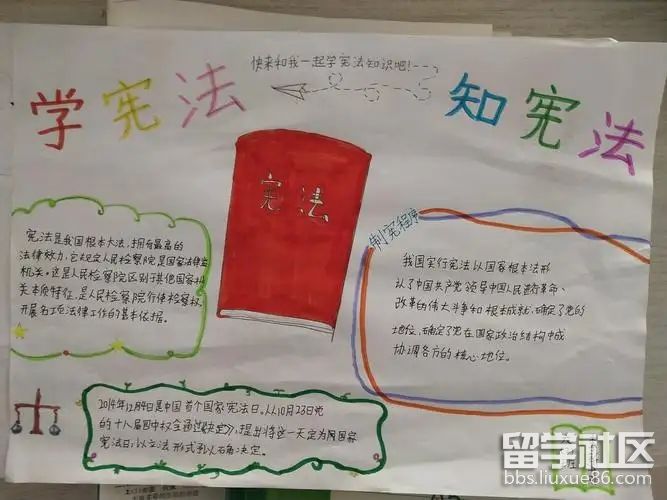 快来和我一起学宪法知识吧！
学宪法
知宪法
宪法
宪法是我国根本大法，拥有最高的
法律效力，它规定人民检察院是国家法律监
机关。这是人民检察院区别于其他国家机
关本质特征，是人民检察院行使检察权，
开展各项法律工作的基本依据。
制宪程序
我国实行宪法以国家根本法形
认了中国共产党领导中国人民进行革命、
改革的伟大斗争和根本成就，确定了党的
地位，确定了党在国家政治结构中总
协调各方的核心地位。
2014年12月4日是中国首个国家宪法日。从10月23日
的十八届四中全会通过决定》，提出将这一天定为国家
宪法日，以立法形式予以确决定。
留学社区
bbs.liuxue86.com